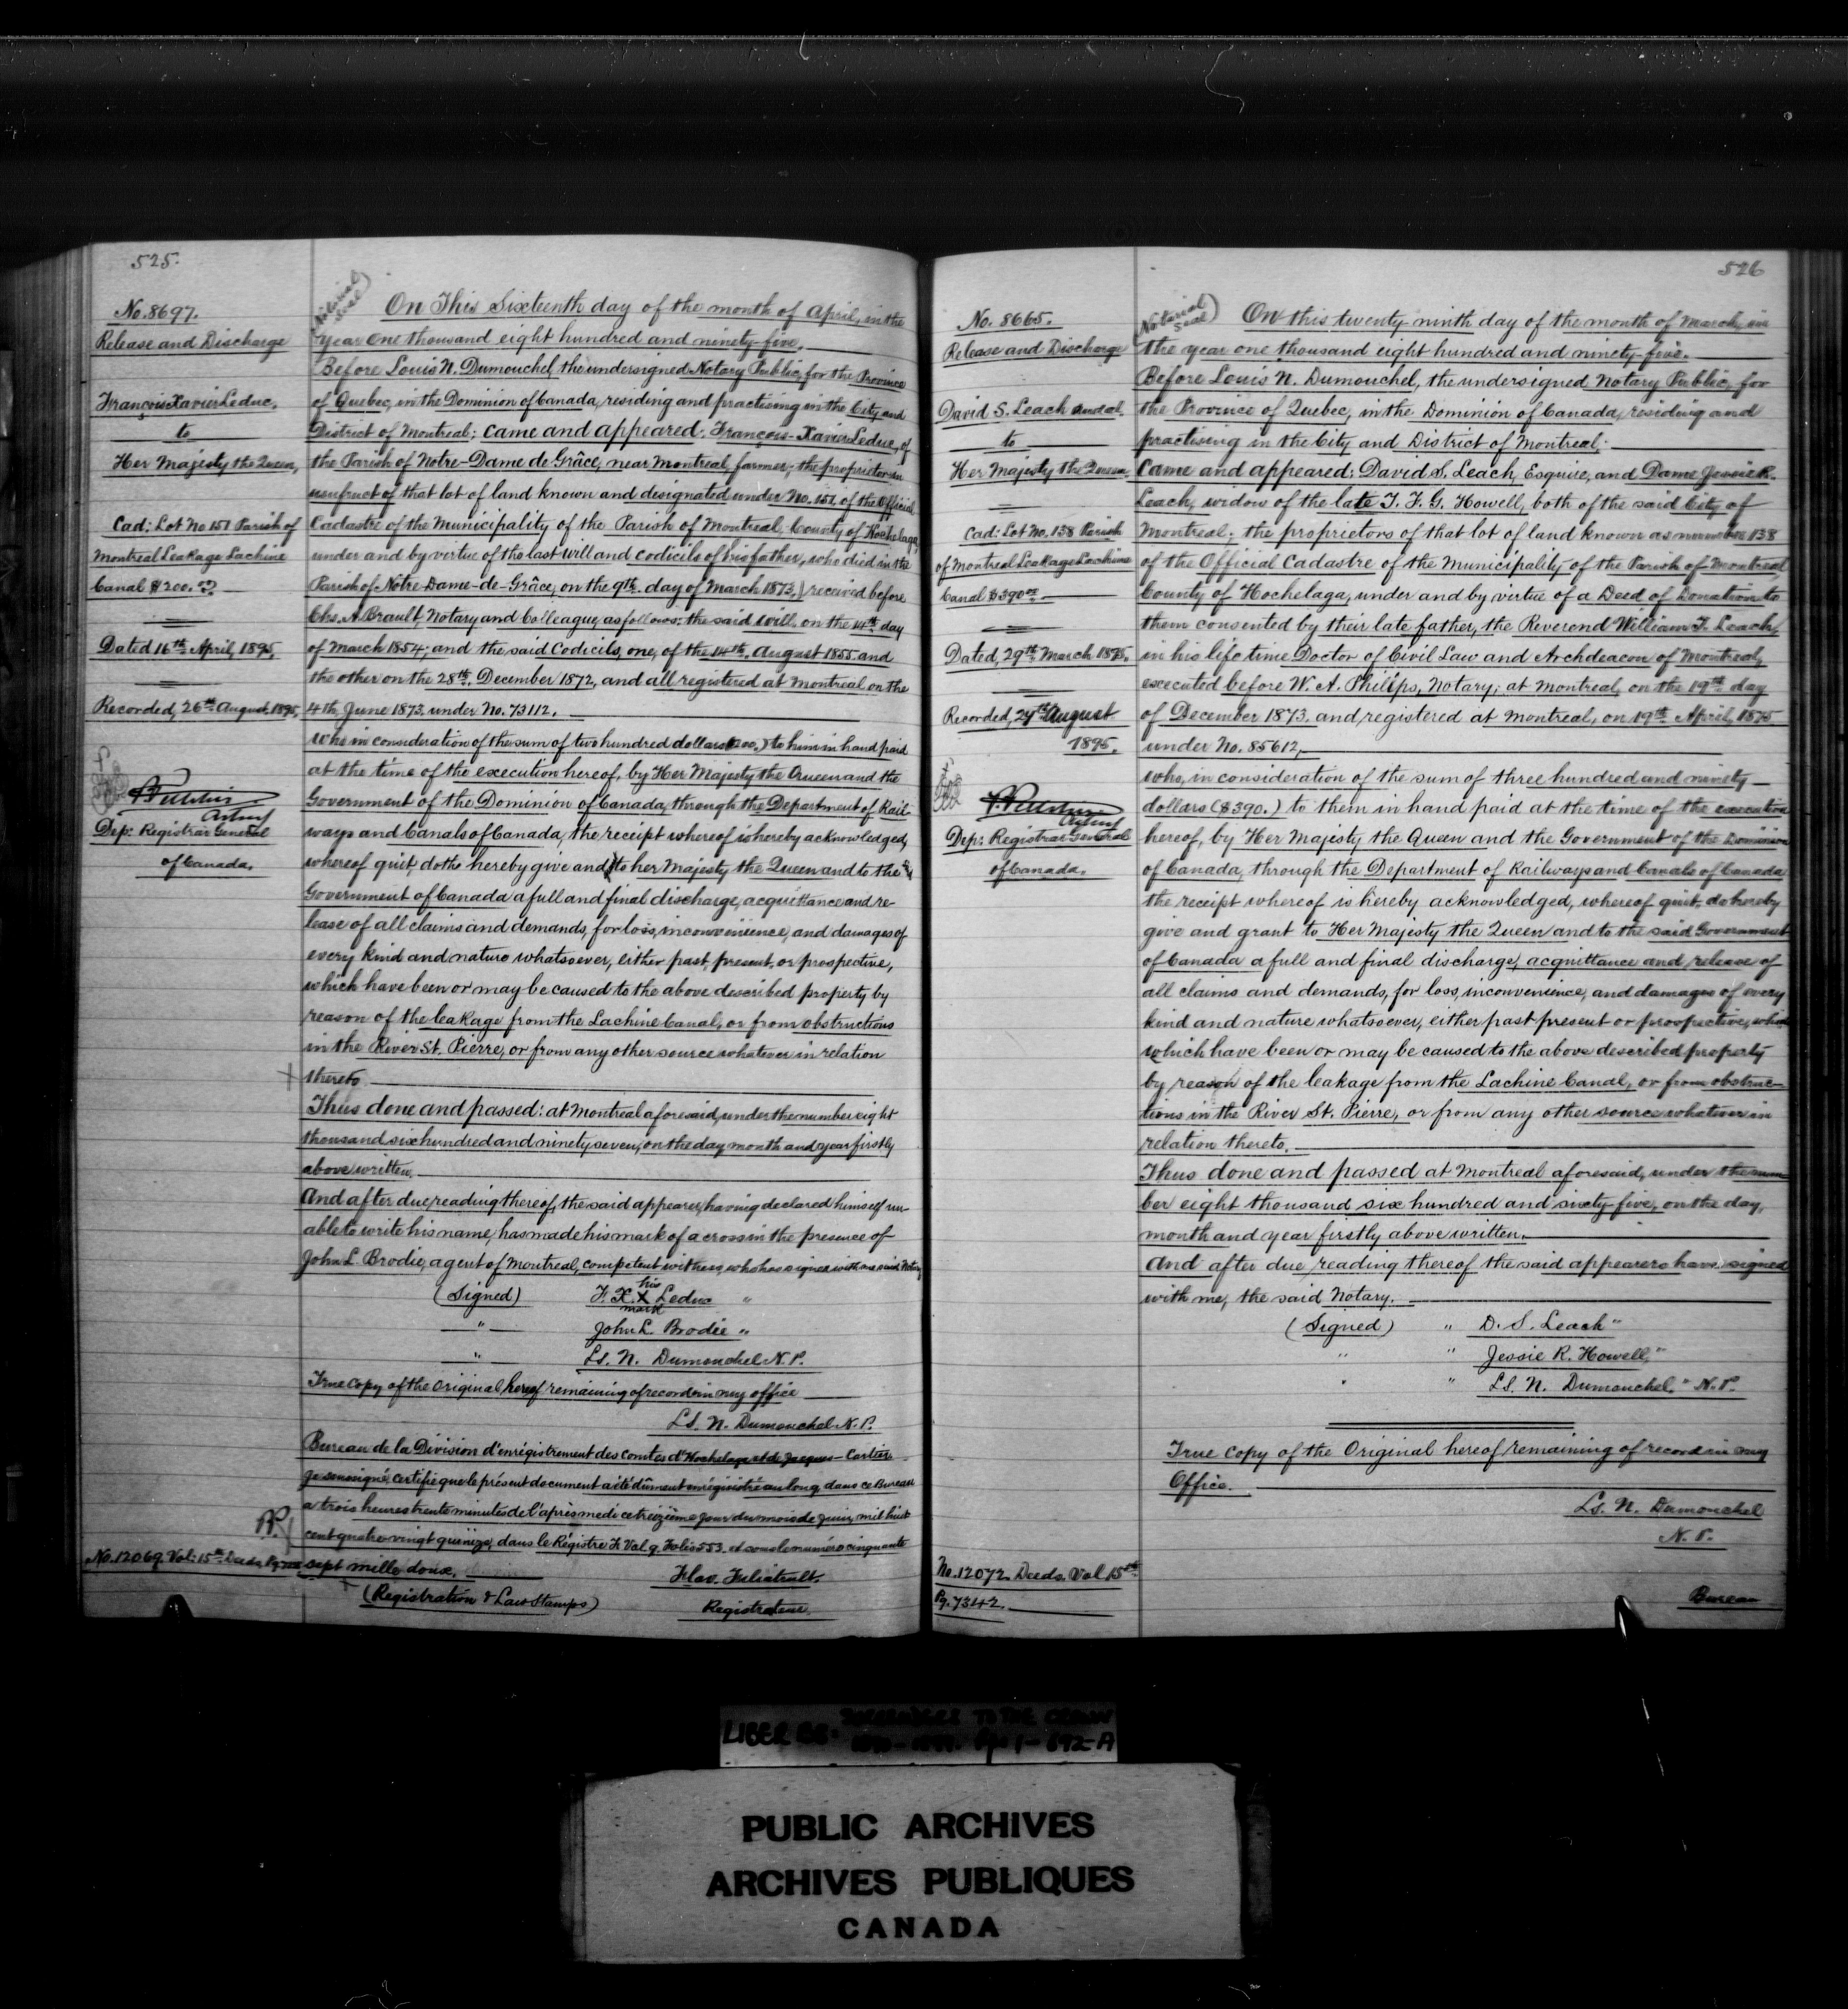 525.
No. 8697.
Release and Discharge
François Xavier Leduc,
to
Her Majesty the Queen,
Cad: Lot No 151 Parish of
Montreal Leakage Lachine
Canal $200.00
Dated 16th April, 1895.
Recorded, 26th August 1895.
Acting
Dep: Registrar General
of Canada.
(Notarial seal)
On This Sixteenth day of the month of April, in the
year one thousand eight hundred and ninety-five.
Before Louis N. Dumouchel, the undersigned Notary Public, for the Province
of Quebec, in the Dominion of Canada, residing and practising in the City and
District of Montreal; Came and appeared: François-Xavier Leduc, of
the Parish of Notre-Dame de Grâce, near Montreal, farmer; the proprietor in
usufruct of that lot of land known and designated under No. 151, of the Official
Cadastre of the Municipality of the Parish of Montreal, County of Hochelaga,
under and by virtue of the last will and codicils of his father, who died in the
Parish of Notre-Dame-de-Grâce, on the 9th day of March 1873,) received before
Chs. A. Brault, Notary and Colleague, as follows: the said Will, on the 14th day
of March 1854; and the said Codicils, one, of the 14th August 1855 and
the other on the 28th December 1872, and all registered at Montreal on the
4th June 1873, under No. 73112.
who in consideration of the sum of two hundred dollars $200.) to him in hand paid
at the time of the execution hereof, by Her Majesty the Queen and the
Government of the Dominion of Canada, through the Department of Rail-
ways and Canals of Canada, the receipt whereof is hereby acknowledged,
whereof quit, doths hereby give and to her Majesty the Queen and to the
Government of Canada a full and final discharge, acquittance and re-
lease of all claims and demands, for loss, inconvenience, and damages of
every kind and nature whatsoever, either past, present, or prospective,
which have been or may be caused to the above described property by
reason of the leakage from the Lachine Canal, or from obstructions
in the River St. Pierre, or from any other source whatever in relation
thereto
Thus done and passed: at Montreal aforesaid, under the number eight
thousand six hundred and ninety seven, on the day month and year firstly
above written.
And after due reading thereof, the said appearer, having declared himself un-
able to write his name, has made his mark of a cross in the presence of
John L. Brodie, agent of Montreal, competent witness, who has signed with me said Notary
(Signed) F. X. his X mark Leduc "
" John L. Brodie "
" Ls. N. Dumouchel N. P.
True Copy of the Original hereof remaining of record in my office
Ls. N. Dumouchel N. P.
Bureau de la Division d'enrégistrement des Comtés d'Hochelaga et de Jacques-Cartier
Je soussigné certifie que le présent document a été dûment enrégistré au long, dans ce Bureau
a trois heures trente minutes de l'après medi ce treizième jour du mois de Juin, mil huit
cent quatre vingt quinze, dans le Régistre H Vol 9. Folio 553. et sous le numéro cinquante
sept mille doux.
Flav. Filiatrault.
(Registration & Law Stamps) Registrateur
No. 12069. Vol: 15th Deeds
526
No. 8665.
Release and Discharge
David S. Leach and al.
to
Her Majesty the Queen
Cad: Lot No. 138 Parish
of Montreal Leakage Lachine
Canal $390.00
Dated, 29th March 1895.
Recorded, 27th August
1895.
Acting
Dep: Registrar General
of Canada.
(Notarial seal)
On this twenty-ninth day of the month of March, in
the year one thousand eight hundred and ninety-five.
Before Louis N. Dumouchel, the undersigned Notary Public, for
the Province of Quebec, in the Dominion of Canada, residing and
practising in the City and District of Montreal;
Came and appeared: David S. Leach, Esquire, and Dame Jessie R.
Leach, widow of the late T. F. G. Howell, both of the said City of
Montreal; the proprietors of that lot of land known as number 138
of the Official Cadastre of the Municipality of the Parish of Montreal,
County of Hochelaga, under and by virtue of a Deed of Donation to
them consented by their late father, the Reverend William T. Leach,
in his life time Doctor of Civil Law and Archdeacon of Montreal,
executed before W. A. Philips, Notary; at Montreal, on the 19th day
of December 1873. and registered at Montreal, on 19th April, 1875
under No. 85612,
who, in consideration of the sum of three hundred and ninety
dollars ($390.) to them in hand paid at the time of the execution
hereof, by Her Majesty the Queen and the Government of the Dominion
of Canada, through the Department of Railways and Canals of Canada
the receipt whereof is hereby acknowledged, whereof quit, do hereby
give and grant to Her Majesty the Queen and to the said Government
of Canada a full and final discharge, acquittance and release of
all claims and demands, for loss, inconvenience, and damages of every
kind and nature whatsoever, either past present or prospective, which
which have been or may be caused to the above described property
by reason of the leakage from the Lachine Canal, or from obstruc-
tions in the River St. Pierre, or from any other source whatever in
relation thereto.
Thus done and passed at Montreal aforesaid, under the num-
ber eight thousand six hundred and sixty-five, on the day,
month and year firstly above written.
And after due reading thereof the said appearers have signed
with me, the said Notary.
(Signed) " D. S. Leach "
" " Jessie R. Howell, "
" " Ls. N. Dumouchel, " N. P.
True Copy of the Original hereof remaining of record in my
Office.
Ls. N. Dumouchel
N. P.
No. 12072 Deeds. Vol 15th
Pg. 7342.
Bureau
LIBER BB: SURRENDERS TO THE CROWN
Pgs 1-692-A
PUBLIC ARCHIVES
ARCHIVES PUBLIQUES
CANADA